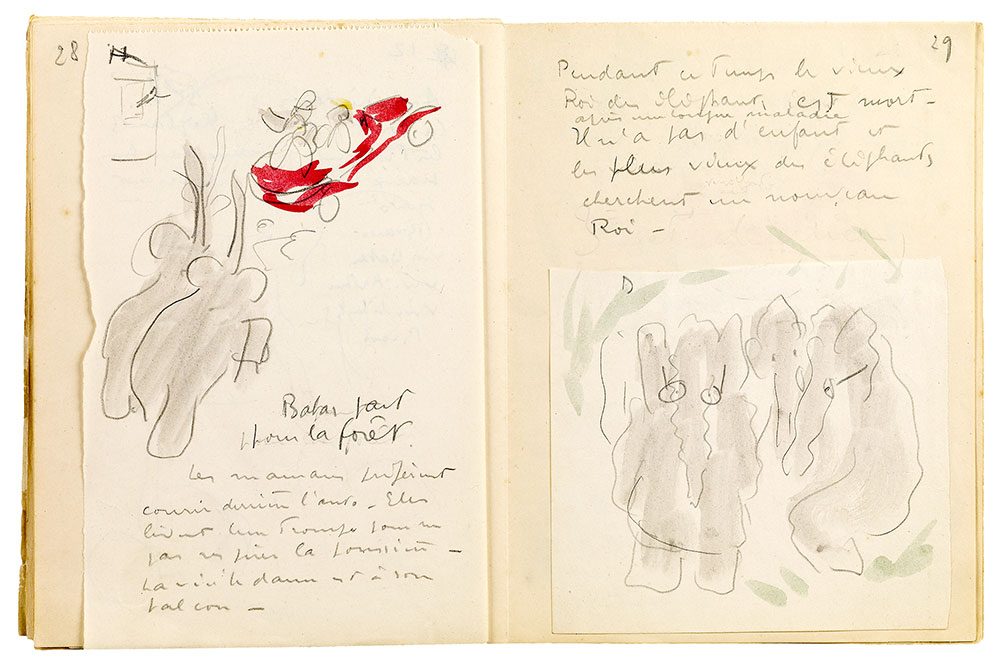 28
Babar part
pour la forêt.
Les mamans préfèrent
courir derrière l'auto - Elles
lèvent leur trompe pour ne
pas respirer la poussière -
La vieille dame est à son
balcon -
29
Pendant ce temps le vieux
Roi des éléphants, est mort -
après une longue maladie
Il n'a pas d'enfant et
les plus vieux des éléphants
cherchent un nouveau
Roi -
D